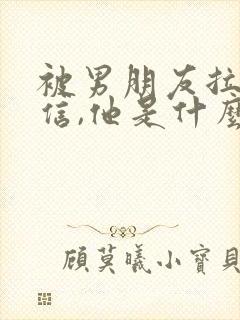 被男朋友拉
信,他是什麼
顧莫曦小寶貝